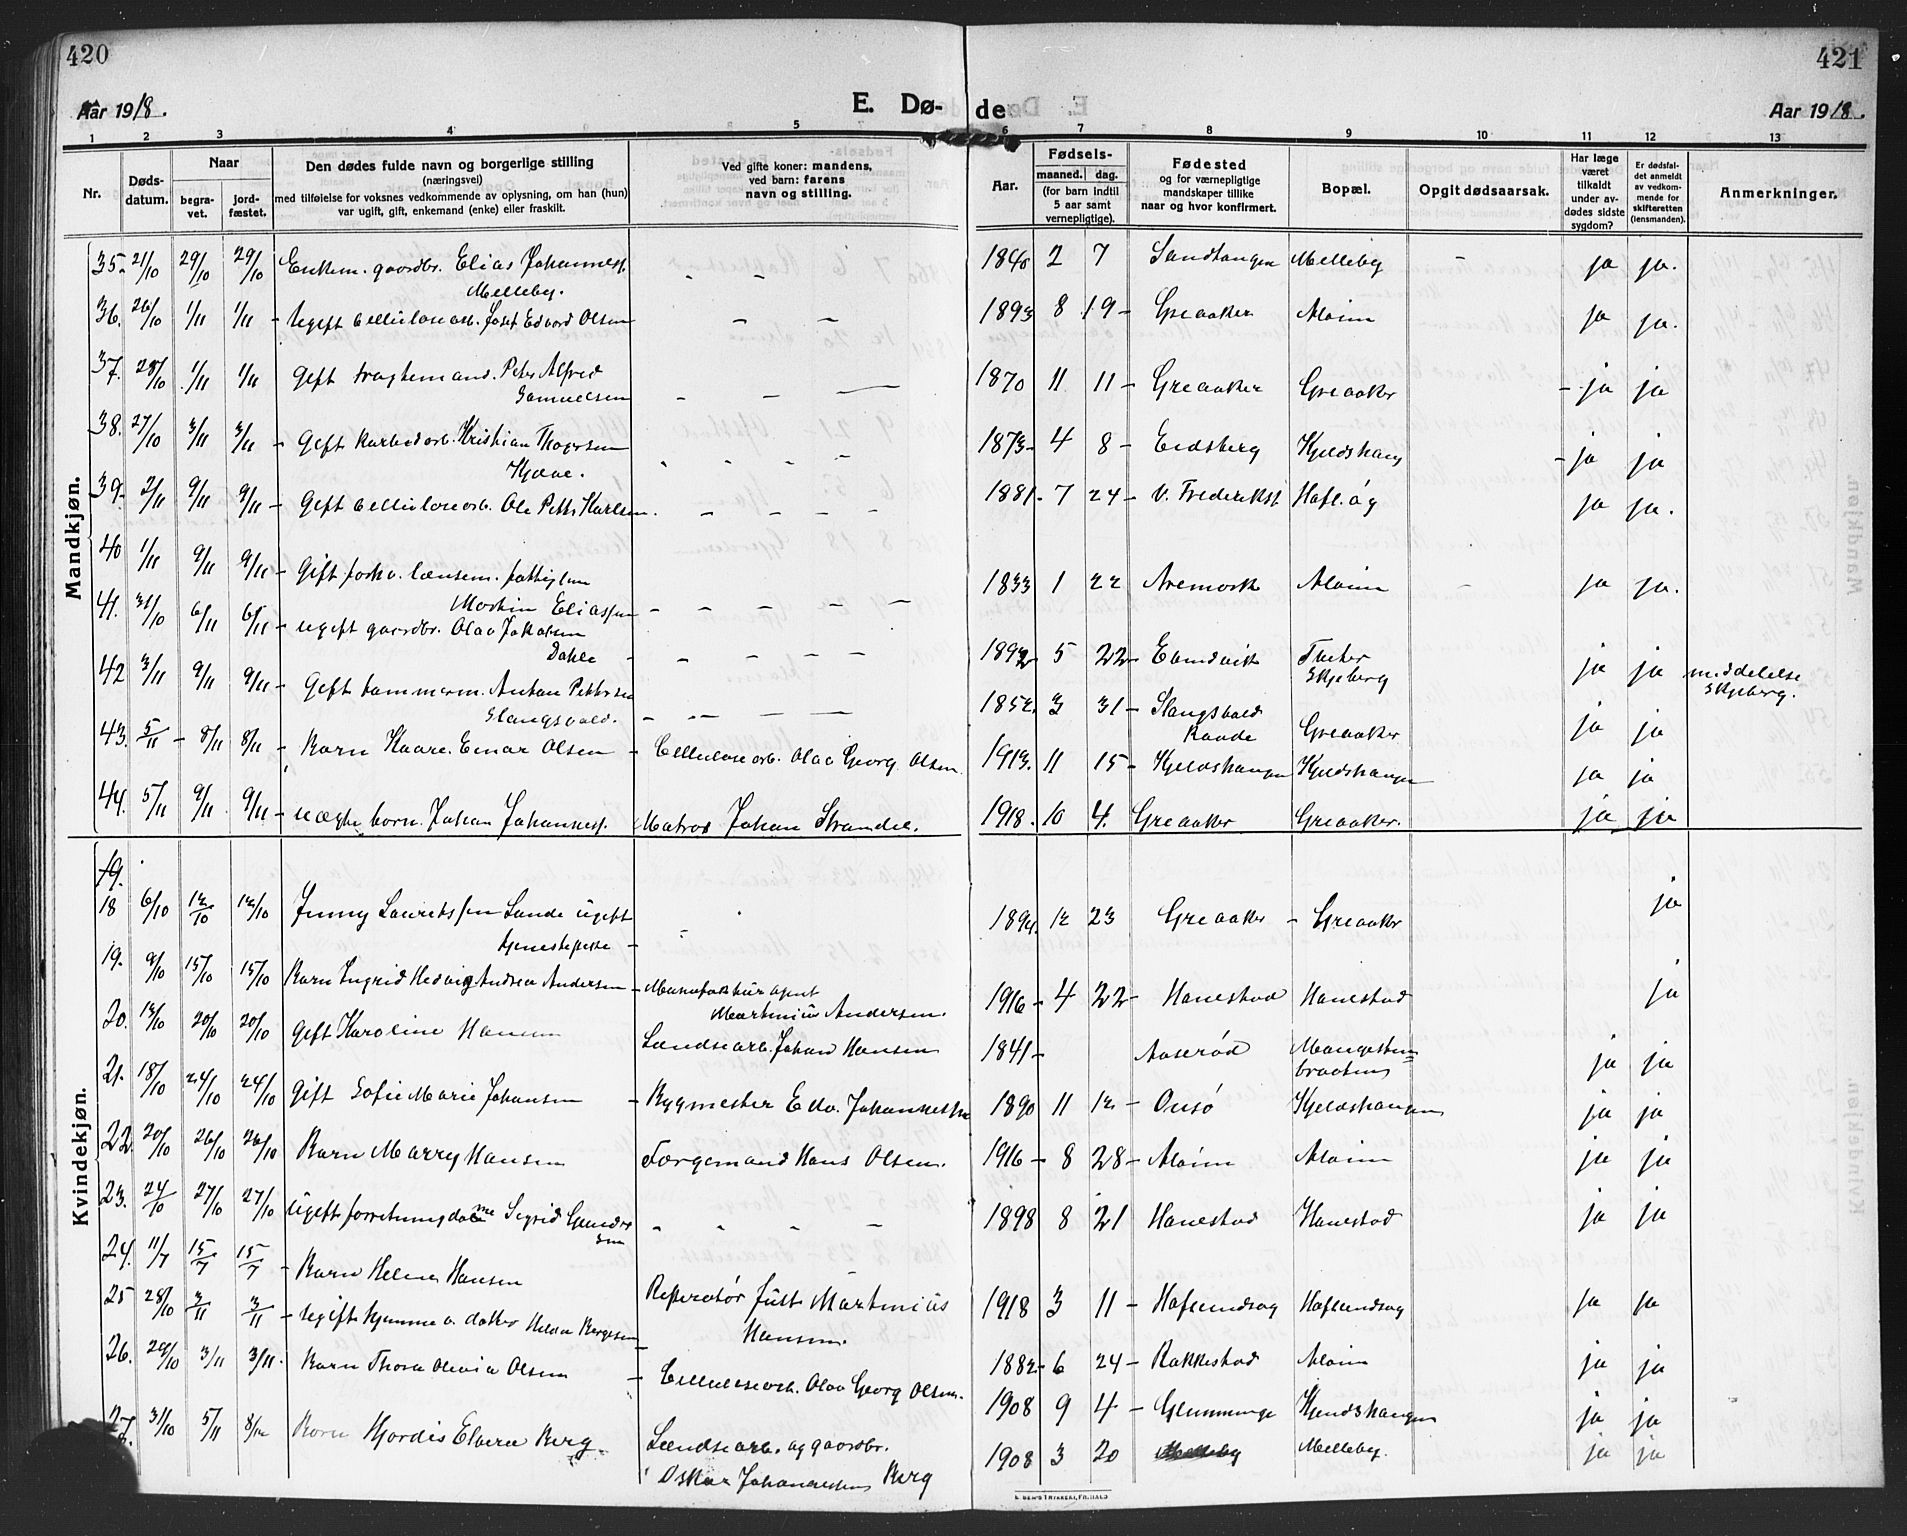 420
421
Aar 1918.
E. Dø-
de
Aar 1918.
1 2 3 4 5 6 7 8 9 10 11 12 13
Nr.
Døds-
datum.
Naar
begra-
vet.
jord-
fæstet.
Den dødes fulde navn og borgerlige stilling
(næringsvei)
med tilføielse for voksnes vedkommende av oplysning, om han (hun)
var ugift, gift, enkemand (enke) eller fraskilt.
Ved gifte koner: mandens,
ved barn: farens
navn og stilling.
Aar.
Fødsels-
maaned. dag.
(for barn indtil
5 aar samt
vernepligtige).
Fødested
og for værnepligtige
mandskaper tillike
naar og hvor konfirmert.
Bopæl.
Opgit dødsaarsak.
Har læge
været
tilkaldt
under av-
dødes sidste
sygdom?
Er dødsfal-
det anmeldt
av vedkom-
mende for
skifteretten
(lensmanden).
Anmerkninger.
Mandkjøn.
35. 21/10 29/10 29/10 Enkem. gaardbr. Elias Johanness. 1840 2 7 Sandtangen Melleby ja ja.
Melleby.
36. 26/10 1/11 1/11 Ugift Cellulosearb. Josef Edvard Olsen 1893 8 19 Greaaker Alvim ja ja.
37. 28/10 1/11 1/11 Gift fragtemand. Peter Alfred 1870 11 11 Greaaker Greaaker ja ja
Samuelsen
38. 27/10 3/11 3/11 Gift Karbidarb. Kristian Thorsen 1873 4 8 Eidsberg Kjeldshaug ja ja
39. 2/11 9/11 9/11 Gift Cellulosearb. Ole Petter Karlsen. 1881 7 24 V. Frederikst. Hafl. ja ja.
40 1/11 9/11 9/11 Gift forhv. lænsem. fattiglem 1833 1 22 Aremark Alvim ja ja.
Martin Eliassen
41. 31/10 6/11 6/11 Ugift gaardbr. Olav Jakobsen 1892 5 22 Tveter ja ja meddelelse
Dahle Skjeberg Skjeberg.
42 3/11 9/11 9/11 Gift tømmerm. Anton Pettersen 1852 3 31 Slangsvold Greaaker ja ja
Slangsvold. Raade
43. 5/11 8/11 8/11 Barn Kaare Einar Olsen Cellulosearb. Olav Georg Olsen 1913. 11 15 Kjeldshaugen Kjeldshaugen ja ja
44. 5/11 9/11 9/11 uægte barn. Johan Johanness. Matros Johan Strandli. 1918. 10 4. Greaaker Greaaker. ja ja
Kvindekjøn.
19.
18 6/10 12/10 12/10 Jenny Lauritssen Lande ugift 1894. 12 23 Greaaker Greaaker ja
tjenestepike
19. 9/10 15/10 15/10 Barn Ingrid Hedvig Andrea Andersen Manufakturagent 1916 4 22 Hanestad Hanestad ja
Martinius Andersen.
20. 13/10 20/10 20/10 Gift Karoline Hansen Lændsearb. Johan Hansen 1841 Aaserød Mangesten- ja ja
braatens
21. 18/10 24/10 24/10 Gift Sofie Marie Johansen Bygmester Edv. Johannessen 1890 11 12 Onsø Kjeldshaugen ja ja
22. 20/10 26/10 26/10 Barn Marry Hansen Færgemand Hans Olsen. 1916 8 28 Alvim Alvim ja ja
23. 24/10 27/10 27/10 Ugift forretningsdame Sigrid Gunder 1898 8 21 Hanestad Hanestad ja ja
sen
24. 11/7 15/7 15/7 Barn Helene Hansen Reperatør Just Martinius 1918 3 11 Hafslundsøg Hafslundsøg ja ja
Hansen.
25 28/10 3/11 3/11 Ugift hjemmev. datter Helda Børgesen 1882 6 24 Rakkestad Alvim ja ja
26. 29/10 3/11 3/11. Barn Thora Olevia Olsen Cellulosearb. Olav Georg Olsen. 1908 9 4 Glemminge Kjeldshaugen ja ja
27. 31/10 5/11 8/12 Barn Hjordis Elvera Berg. Lændsearb. og gaardbr. 1908 3 20 Melleby Melleby. ja ja
Oskar Johannessen Berg